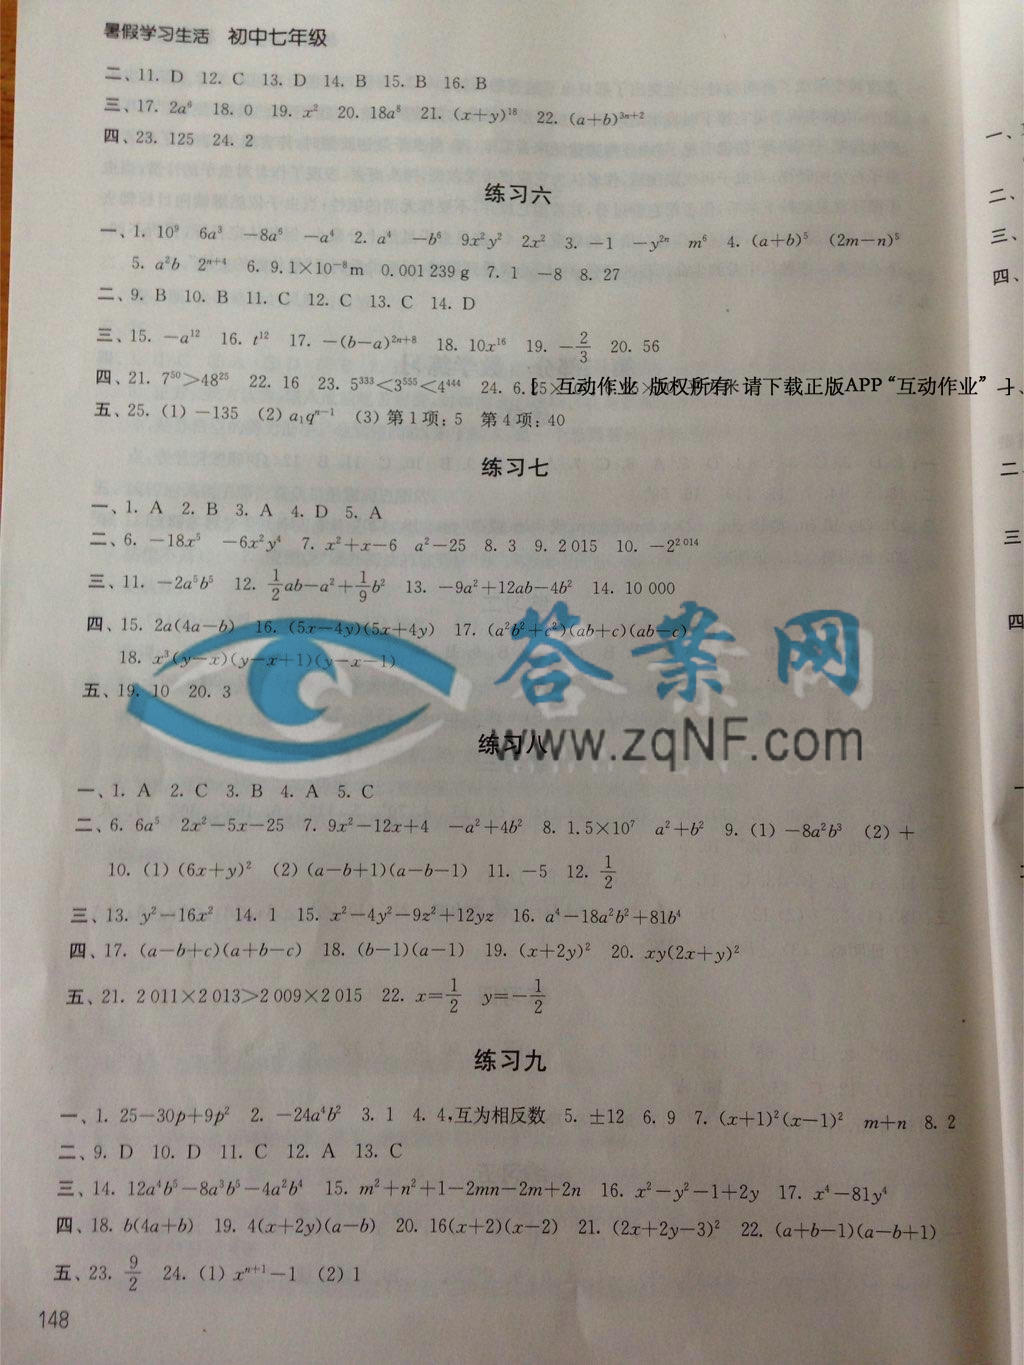 暑假学习生活 初中七年级
二、11. D 12. C 13. D 14. B 15. B 16. B
三、17. 2a⁶ 18. 0 19. x² 20. 18a⁸ 21. (x+y)¹⁸ 22. (a+b)³ⁿ⁺²
四、23. 125 24. 2
练习六
一、1. 10⁹ 6a³ −8a⁶ −a⁴ 2. a⁴ −b⁶ 9x²y² 2x² 3. −1 −y²ⁿ m⁶ 4. (a+b)⁵ (2m−n)⁵
5. a²b 2ⁿ⁺⁴ 6. 9.1×10⁻⁸m 0.001 239 g 7. 1 −8 8. 27
二、9. B 10. B 11. C 12. C 13. C 14. D
三、15. −a¹² 16. t¹² 17. −(b−a)²ⁿ⁺⁸ 18. 10x¹⁶ 19. −2/3 20. 56
四、21. 7⁵⁰>48²⁵ 22. 16 23. 5³³³<3⁵⁵⁵<4⁴⁴⁴ 24. 6. 互动作业 版权所有 请下载正版APP“互动作业”
五、25. (1) −135 (2) a₁qⁿ⁻¹ (3) 第1项: 5 第4项: 40
练习七
一、1. A 2. B 3. A 4. D 5. A
二、6. −18x⁵ −6x²y⁴ 7. x²+x−6 a²−25 8. 3 9. 2 015 10. −2²⁰¹⁴
三、11. −2a⁵b⁵ 12. 1/2ab−a²+1/9b² 13. −9a²+12ab−4b² 14. 10 000
四、15. 2a(4a−b) 16. (5x−4y)(5x+4y) 17. (a²b²+c²)(ab+c)(ab−c)
18. x³(y−x)(y−x+1)(y−x−1)
五、19. 10 20. 3
答案网
www.zqNF.com
练习八
一、1. A 2. C 3. B 4. A 5. C
二、6. 6a⁵ 2x²−5x−25 7. 9x²−12x+4 −a²+4b² 8. 1.5×10⁷ a²+b² 9. (1) −8a²b³ (2) +
10. (1) (6x+y)² (2) (a−b+1)(a−b−1) 11. −5 12. 1/2
三、13. y²−16x² 14. 1 15. x²−4y²−9z²+12yz 16. a⁴−18a²b²+81b⁴
四、17. (a−b+c)(a+b−c) 18. (b−1)(a−1) 19. (x+2y)² 20. xy(2x+y)²
五、21. 2 011×2 013>2 009×2 015 22. x=1/2 y=−1/2
练习九
一、1. 25−30p+9p² 2. −24a⁴b² 3. 1 4. 4,互为相反数 5. ±12 6. 9 7. (x+1)²(x−1)² m+n 8. 2
二、9. D 10. D 11. C 12. A 13. C
三、14. 12a⁴b⁵−8a³b⁵−4a²b⁴ 15. m²+n²+1−2mn−2m+2n 16. x²−y²−1+2y 17. x⁴−81y⁴
四、18. b(4a+b) 19. 4(x+2y)(a−b) 20. 16(x+2)(x−2) 21. (2x+2y−3)² 22. (a+b−1)(a−b+1)
五、23. 9/2 24. (1) xⁿ⁺¹−1 (2) 1
148
一、
二、
三、
四、
二
三
四